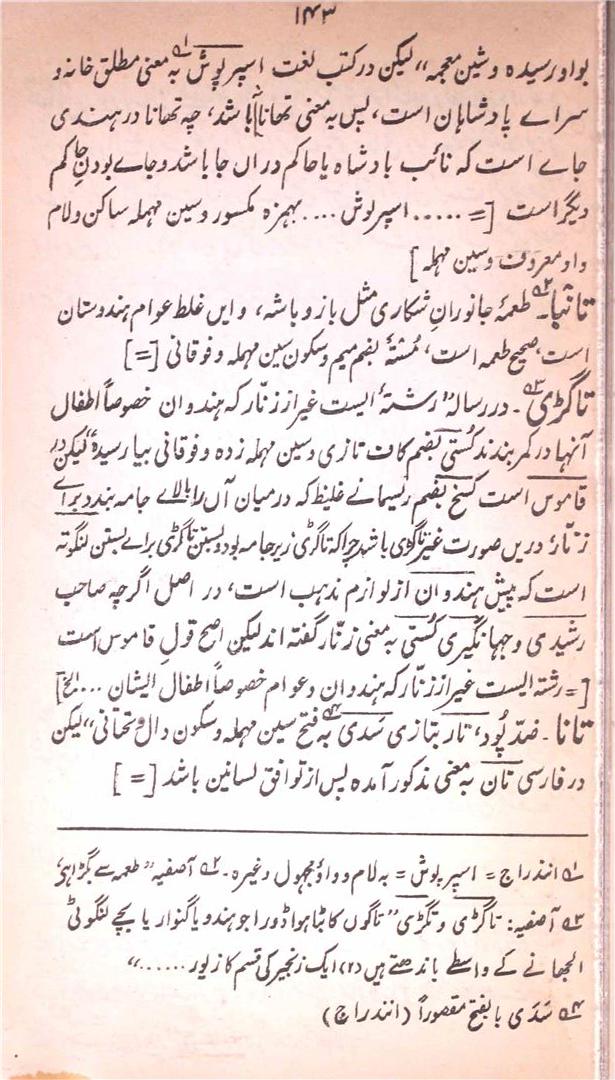 ۱۴۳
بواو رسیدہ و شین معجمہ“ لیکن در کتب لغت اسپر لوش؁۱ بہ معنی مطلق خانہ و
سراے پادشاہان است، پس بہ معنی تھانا باشد، چہ تھانا در ہندی
جاے است کہ نائب بادشاہ یا حاکم در اں جا باشد و جاے بودنِ حاکم
دیگر است [= ..... اسپر لوش .... بہمزہ مکسور و سین مہملہ ساکن و لام
واو معروف و سین مہملہ]
تانبا؁۲۔ طعمۂ جانورانِ شکاری مثل باز و باشہ، و ایں غلط عوام ہندوستان
است، صحیح طعمہ است، مُستۂ بضم میم و سکون سین مہملہ و فوقانی [=]
تاگڑی؁۳۔ در رسالہ ”رشتۂ ایست غیر از زنّار کہ ہندوان خصوصاً اطفال
آنہا در کمر بندند کُستی بضم کاف تازی و سین مہملہ زدہ و فوقانی بیا رسیدہ“ لیکن در
قاموس است کستج بضم ریسمانے غلیظ کہ درمیان آں را بالاے جامہ بندد براے
زنّار، دریں صورت غیر تاگڑی باشد چرا کہ تاگڑی زیر جامہ بود و بستنِ تاگڑی براے بستن لنگوتہ
است کہ پیش ہندوان از لوازم مذہب است، در اصل اگرچہ صاحب
رشیدی و جہانگیری کُستی بہ معنی زنّار گفتہ اند لیکن اصح قولِ قاموس است
[= رشتہ ایست غیر از زنّار کہ ہندوان و عوام خصوصاً اطفال ایشان ... الخ]
تانا۔ ضدّ پُود، تار بتازی سَدی؁۴ بہ فتح سین مہملہ و سکون دال و تحتانی“ لیکن
در فارسی تان بہ معنی مذکور آمدہ پس از توافق لسانین باشد [=]
؁۱ انندراج = اسپر لوش = بہ لام و واؤ مجہول وغیرہ۔ ؁۲ آصفیہ ”طعمہ سے بگڑا ہے“
؁۳ آصفیہ: تاگڑی و تگڑی ”تاگوں کا بٹا ہوا ڈورا جو ہندو یا گنوار یا بچے لنگوٹی
الجھانے کے واسطے باندھتے ہیں (۲) ایک زنجیر کی قسم کا زیور ......“
؁۴ سَدَی بالفتح مقصوراً (انندراج)